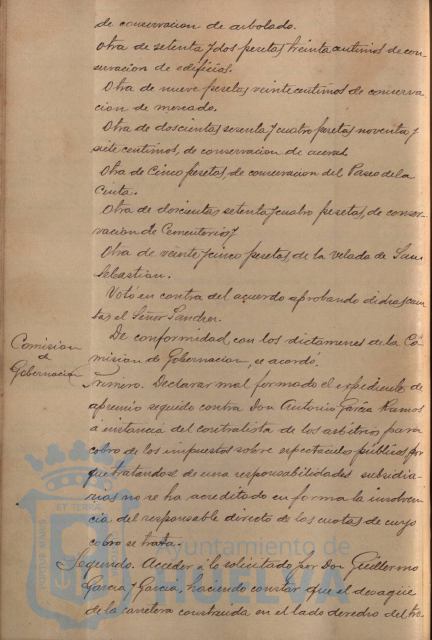 de conservacion de arbolado.
Otra de setenta y dos pesetas treinta centimos de con-
servacion de edificios.
Otra de nueve pesetas veinte centimos de conserva
cion de mercado.
Otra de doscientas sesenta y cuatro pesetas noventa y
siete centimos, de conservacion de aceras
Otra de Cinco pesetas, de conservacion del Paseo de la
Cinta.
Otra de doscientas setenta y cuatro pesetas, de conser-
vacion de Cementerios y
Otra de veinte y cinco pesetas de la velada de San
Sebastian.
Votó en contra del acuerdo aprobando dichas cuen
tas el Señor Sanchez.
De conformidad con los dictamenes de la Co
Comision
de
Gobernacion
mision de Gobernacion, se acordó.
Primero. Declarar mal formado el expediente de
apremio seguido contra Don Antonio Garcia Ramos
á instancia del contratista de los arbitrios para
cobro de los impuestos sobre espectaculos publicos por
que tratandose de una responsabilidades subsidia-
rias no se ha acreditado en forma la insolven-
cia del responsable directo de las cuotas de cuyo
cobro se trata.
Segundo. Acceder á lo solicitado por Don Guillermo
Garcia y Garcia, haciendo constar que el desagüe
de la carretera construida en el lado derecho del tra
ET TERRA
Ayuntamiento de
HUELVA